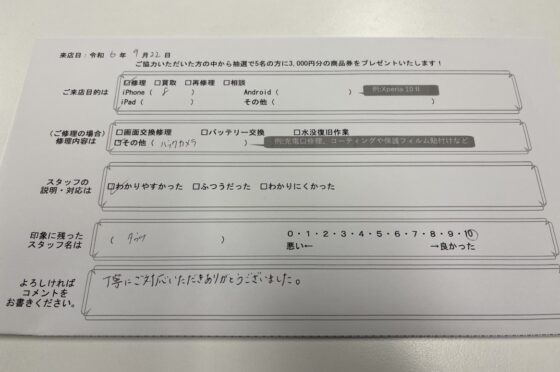 来店日：令和 6 年 9 月 22 日
ご協力いただいた方の中から抽選で5名の方に3,000円分の商品券をプレゼントいたします！
ご来店目的は
☑修理 □買取 □再修理 □相談
iPhone ( 8 ) Android ( ) 例:Xperia 10 II
iPad ( ) その他 ( )
(ご修理の場合)
修理内容は
□画面交換修理 □バッテリー交換 □水没復旧作業
☑その他 ( バックカメラ ) 例:充電口修理、コーティングや保護フィルム貼付けなど
スタッフの
説明・対応は
☑わかりやすかった □ふつうだった □わかりにくかった
印象に残った
スタッフ名は
( )
0・1・2・3・4・5・6・7・8・9・10
悪い← →良かった
よろしければ
コメントを
お書きください。
丁寧にご対応いただきありがとうございました。